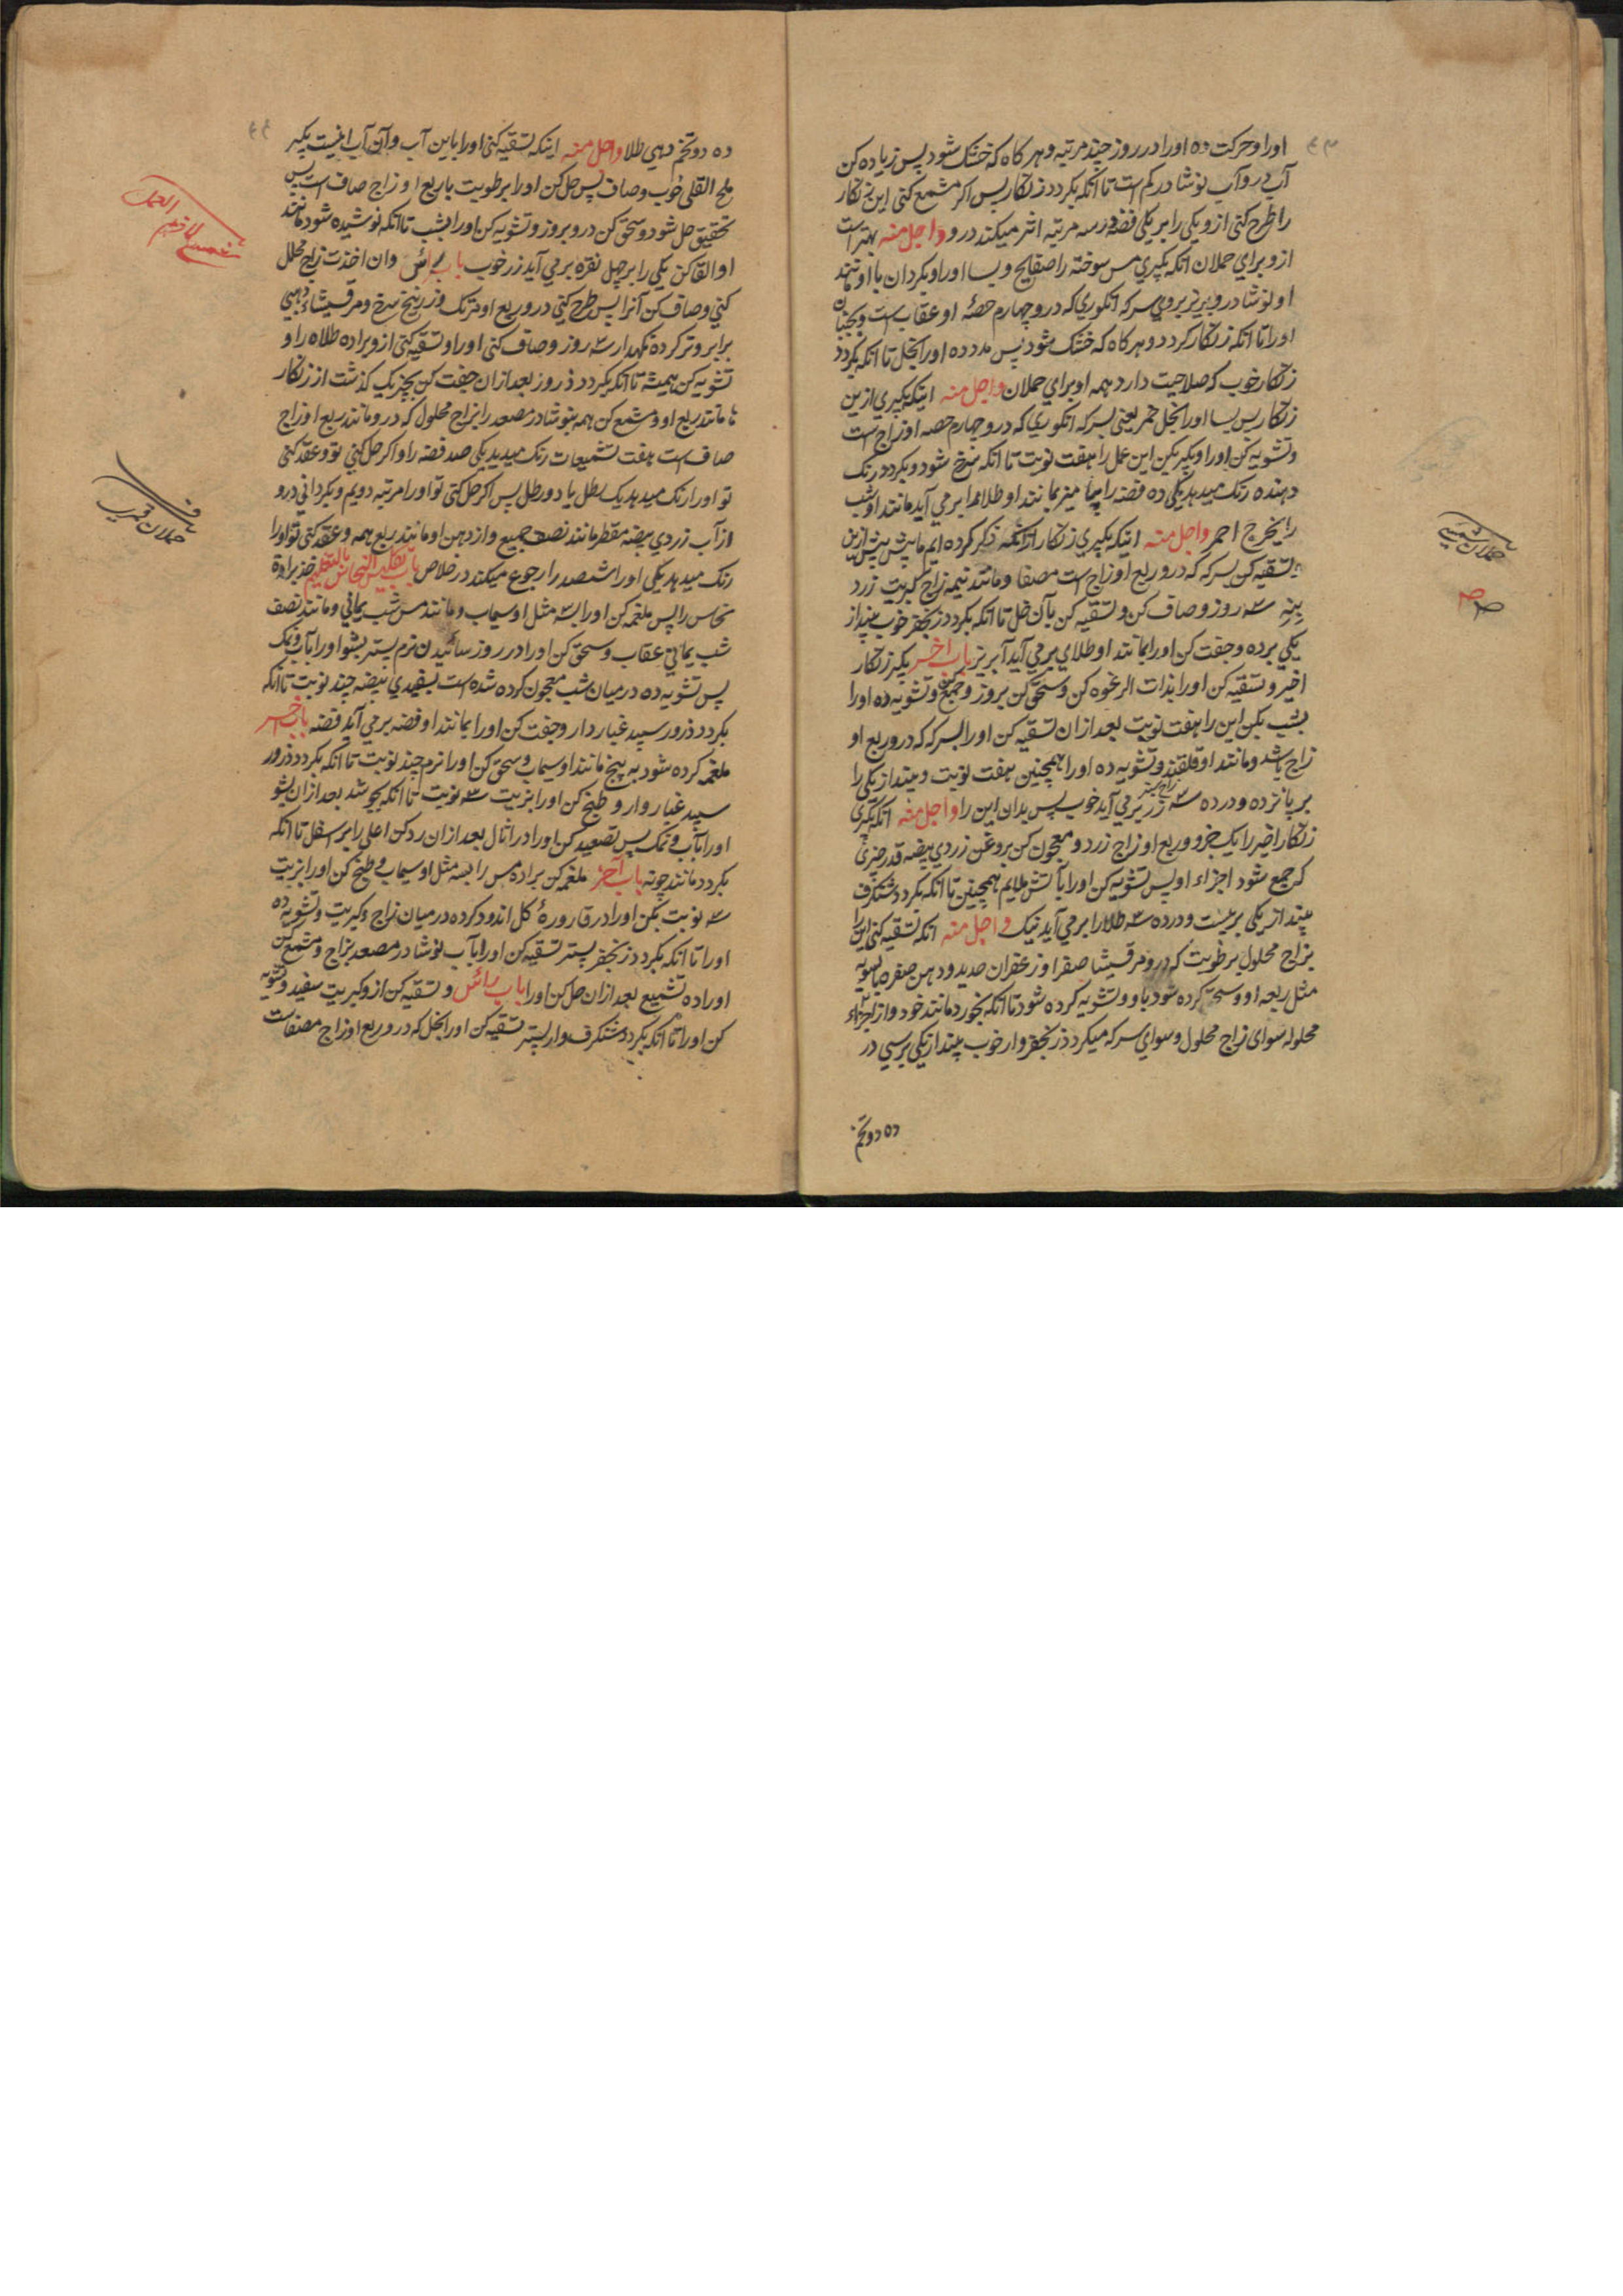 اورا و حرکت ده اورا در روز چند مرتبه و هر کاه که خشک شود پس زیاده کن
آب درو آب نوشادر کم است تا آنکه بکردد زنکار پس اکر مشمع کنی این زنکار
را طرح کنی ازو یکی را بر یکی فضه درسه مرتبه اثر میکند درو واجل منه بهتر است
ازو برای حملان آنکه بکیری مس سوخته را صفایح و بسا اورا و بکردان با او مانند
او نوشادر و بریز بروی سرکه انکوری که درو چهارم حصهٔ او عقاب است و بجنبان
اورا تا آنکه زنکار کردد و هر کاه که خشک شود پس مدد ده اورا بخل تا آنکه بکردد
زنکار خوب که صلاحیت دارد همه او برای حملان واجل منه اینکه بکیری ازین
زنکار پس بسا اورا بخل خمر یعنی بسرکه انکوری که درو چهارم حصه او زاج است
و تشویه کن اورا و بکیر بکن این عمل را هفت نوبت تا آنکه سرخ شود و بکردد رنک
دهنده رنک میدهد یکی ده فضه را بمانند او طلا برمی آید مانند او شب
را یخرج احمر واجل منه اینکه بکیری زنکار آنکه ذکر کرده ایم ما پیش ازین
تسقیه کن بسرکه که درو ربع او زاج است مصفا و مانند نیمه زاج کبریت زرد
سه روز و صاف کن و تسقیه کن بآن خل تا آنکه بکردد زنجفر خوب بینداز
یکی برده و جفت کن اورا بمانند او طلای برمی آید آبریز باب اخر بکیر زنکار
اخیر و تسقیه کن اورا بذات الرغوه کن و سحق کن بروز و جمع کن و تشویه ده اورا
بشب بکن این را هفت نوبت بعد ازان تسقیه کن اورا بسرکه که درو ربع او
زاج باشد و مانند او قلقند و تشویه ده اورا همچنین هفت نوبت و بینداز یکی را
بر پانزده و در ده سه زر برمی آید خوب پس بدان این را واجل منه آنکه بکیری
زنکار اخیر را یک جزو و ربع او زاج زرد و معجون کن بروغن زردی بیضه قدر چیزی
که جمع شود اجزاء او پس تشویه کن اورا بآتش ملایم همچنین تا آنکه بکردد شنکرف
بینداز یکی بر بیست و در ده سه طلا را برمی آید نیک واجل منه آنکه تسقیه کنی این را
بزاج محلول برطوبت که درو مرقیشا صفرا و زعفران حدید و دهن صفره بسویه
مثل ربعه او و سحق کرده شود باو و تشویه کرده شود تا آنکه بخورد مانند خود و از اجزاء
محلوله سوای زاج محلول و سوای سرکه میکردد زنجفر وار خوب بینداز یکی بر سی در
ده دو تخم
حملان شمسی
ده دو تخم دهی طلا واجل منه اینکه تسقیه کنی اورا باین آب و آن آب اینست بکیر
ملح القلی خوب و صاف پس حل کن اورا برطوبت باربع او زاج صاف است پس
تحقیق حل شود و سحق کن درو بروز و تشویه کن اورا بشب تا آنکه نوشیده شود مانند
او القا کن یکی را بر چهل نقره برمی آید زر خوب باب رأس وان اخذت زاج محلل
کنی و صاف کن آنرا پس طرح کنی درو ربع او نمک و زرنیخ سرخ و مرقیشاء ذهبی
برابر و تر کرده نکهدار سه روز و صاف کنی اورا و تسقیه کنی ازو براده طلاه را و
تشویه کن همیشه تا آنکه بکردد ذرور بعد ازان جفت کن بچیزیک کذشت از زنکار
ما مانند ربع او و مشمع کن همه بنوشادر مصعد را بزاج محلول که درو مانند ربع او زاج
صاف است هفت تشمیعات رنک میدهد یکی صد فضه را و اکر حل کنی تو و عقد کنی
تو اورا رنک میدهد یک رطل یا دو رطل پس اکر حل کنی تو اورا مرتبه دویم و بکردانی درو
از آب زردی بیضه مقطر مانند نصف جمیع و از دهن او مانند ربع همه و عقد کنی تو اورا
رنک میدهد یکی اورا شصد را رجوع میکند در خلاص باب تکلیس النحاس بالتعلیم خذ براده
نحاس را پس ملغمه کن اورا سه مثل او سیماب و مانند مس شب یمانی و مانند نصف
شب یمانی عقاب و سحق کن اورا در روز سائیدن نرم پستر بشو اورا بآب و نمک
پس تشویه ده در میان شب معجون کرده شده است بسفیدی بیضه چند نوبت تا آنکه
بکردد ذرور سپید غبار دار و جفت کن اورا بمانند او فضه برمی آید فضه باب اخر
ملغمه کرده شود به پنج مانند او سیماب و سحق کن اورا نرم چند نوبت تا آنکه بکردد ذرور
سپید غبار وار و طبخ کن اورا بزیت سه نوبت تا آنکه بجوشد بعد ازان بشو
اورا بآب و نمک پس تصعید کن اورا در اثال بعد ازان رد کن اعلی را بر اسفل تا آنکه
بکردد مانند چونه باب آخر ملغمه کن براده مس را بسه مثل او سیماب و طبخ کن اورا بزیت
سه نوبت بکن اورا در قارورهٔ کل اندود کرده در میان زاج و کبریت و تشویه ده
اورا تا آنکه بکردد زنجفر پستر تسقیه کن اورا بآب نوشادر مصعد بزاج و مشمع کن
اورا ده تشمیع بعد ازان حل کن اورا باب رائس و تسقیه کن ازو کبریت سفید و تشویه
کن اورا تا آنکه بکردد شنکرف وار پستر تسقیه کن اورا بخل که درو ربع او زاج مصفات
حملان قمری